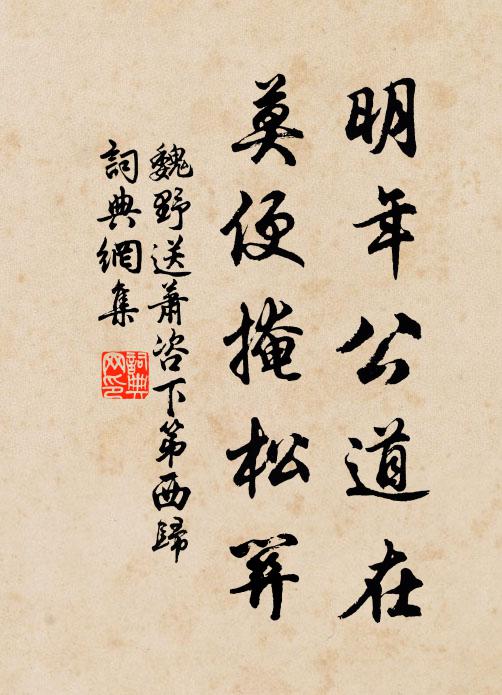 明年公道在
莫便掩松關
魏野送蕭咨下第西歸
詞典網集
詞典网印